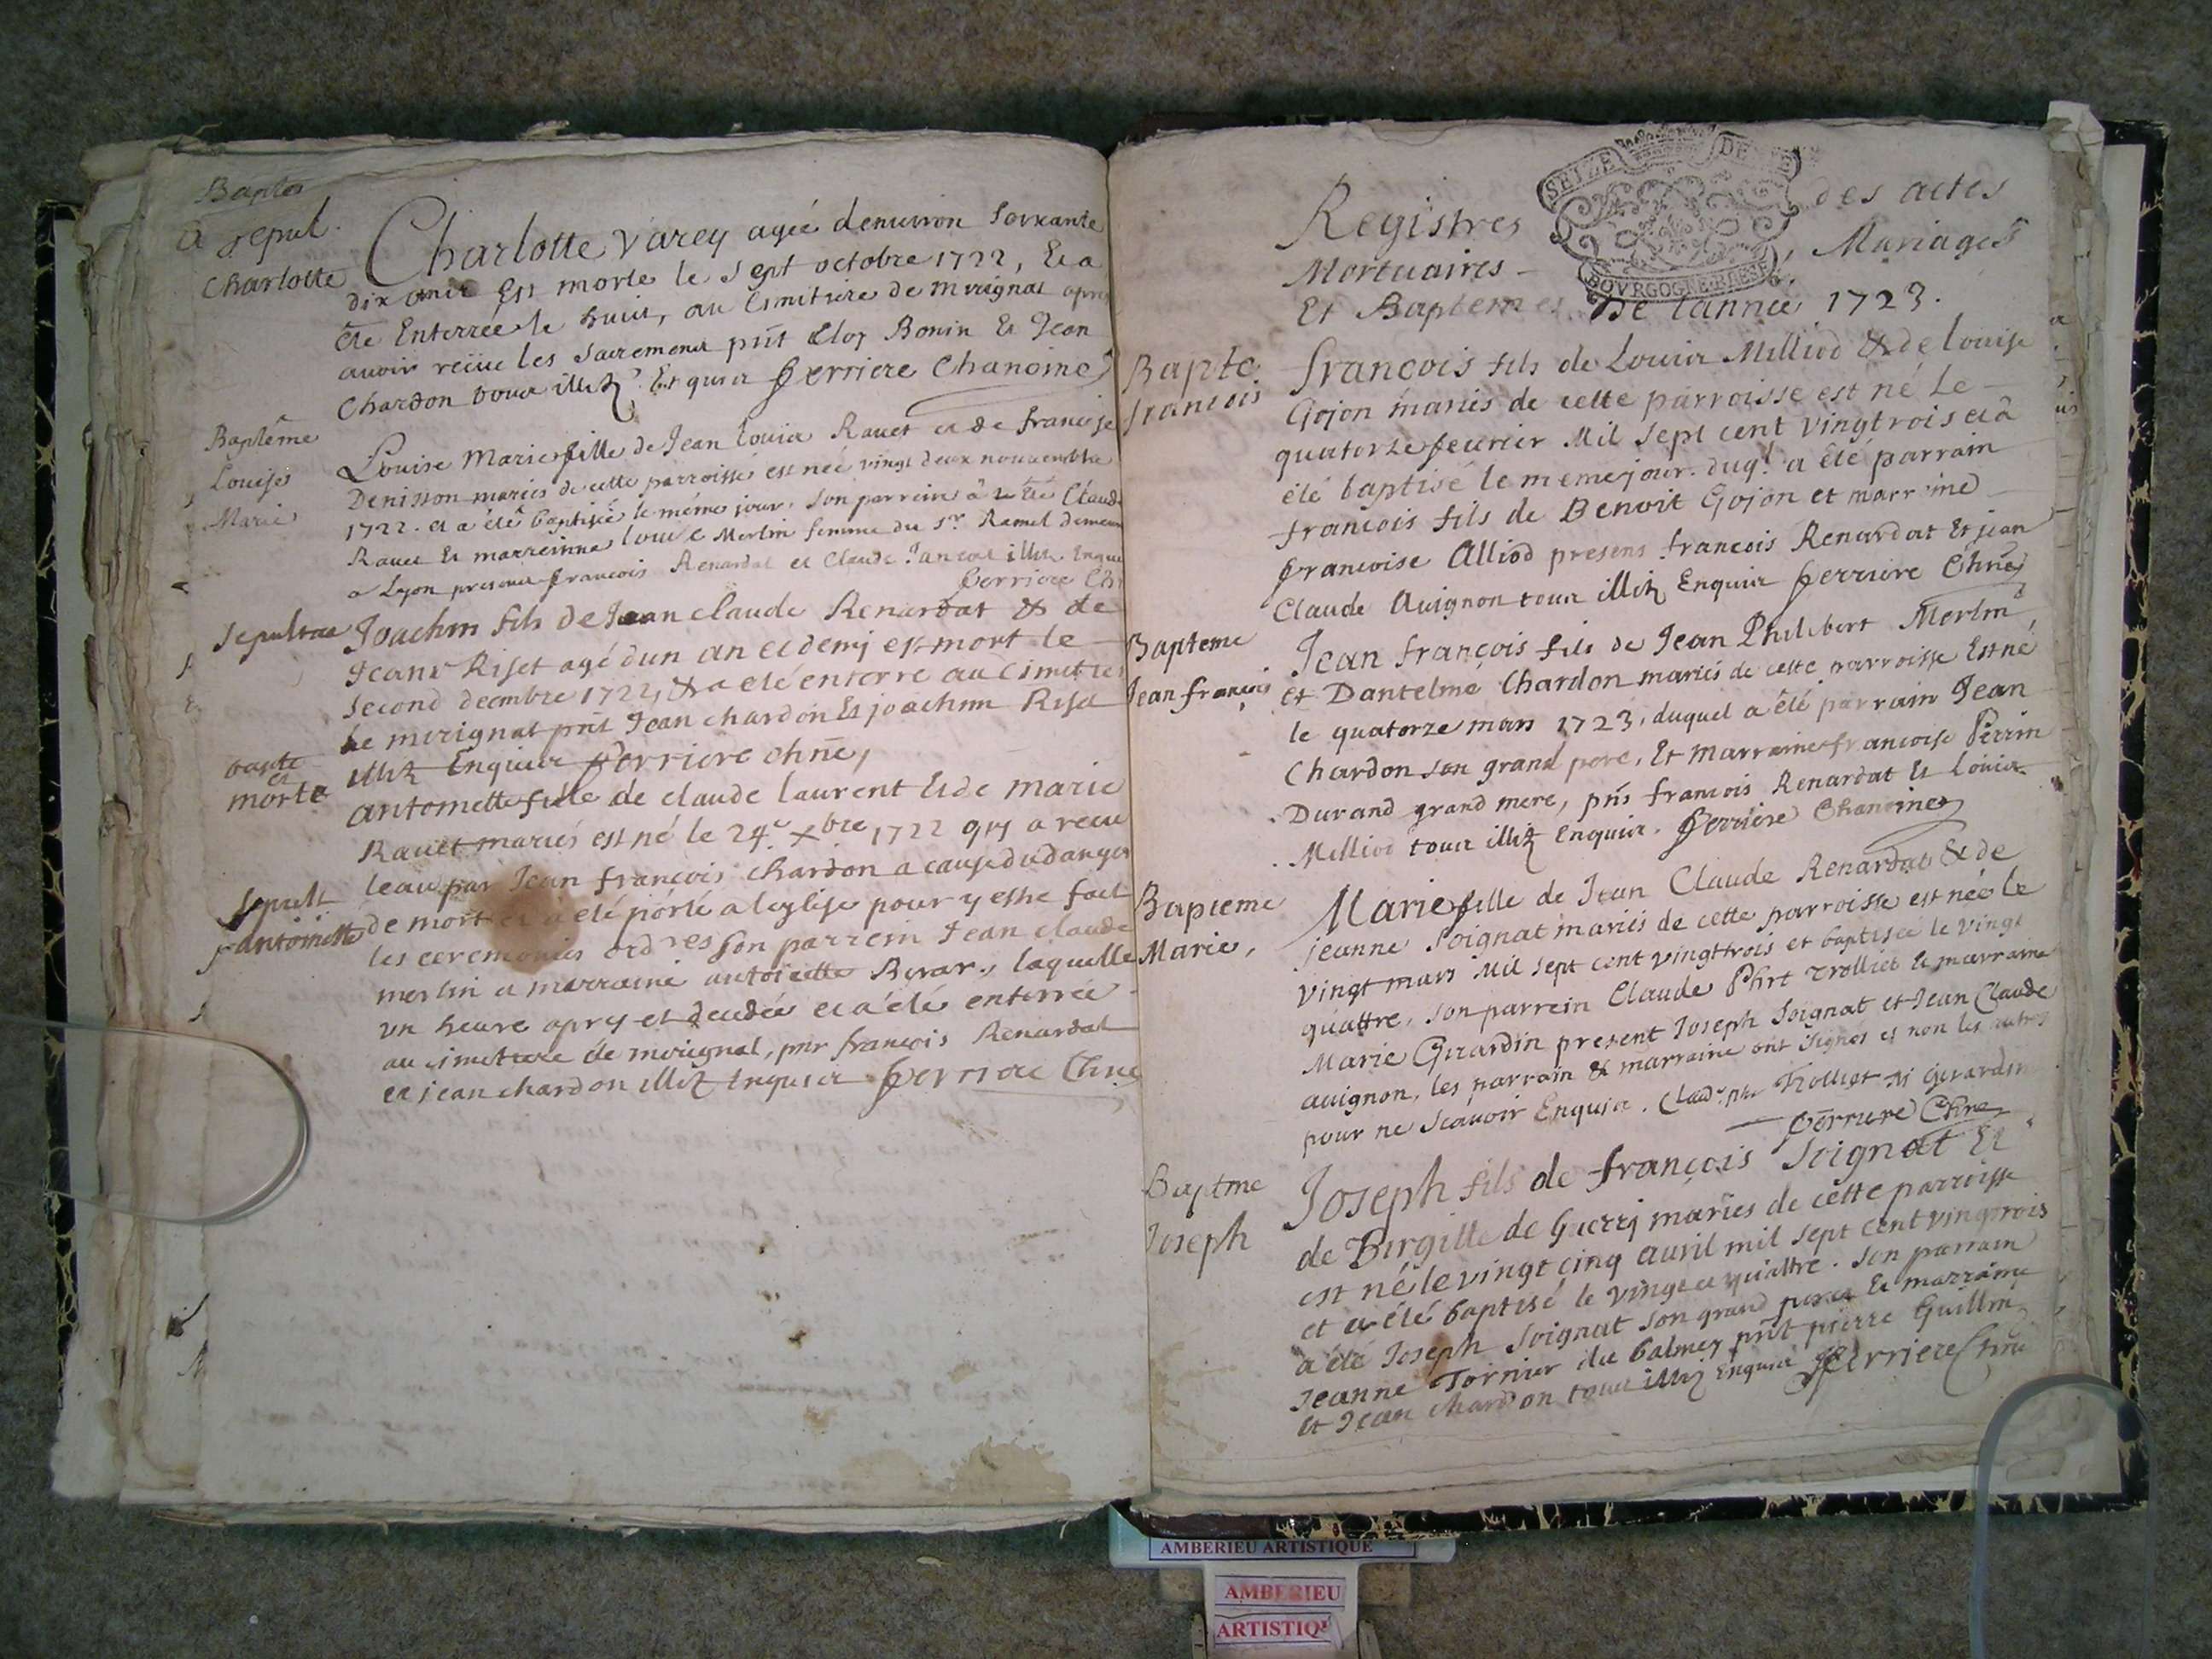 Baptes
& sepul.
Charlotte
Charlotte Varey agée denuiron soixante
dix ans est morte le sept octobre 1722, Et a
été Enterrée le huit, au Cimitiere de mérignat apres
auoir reçüe les sacremens pnt Eloy Bonin Et Jean
Chardon tous illitz Enquis ferriere Chanoine
Baptême
Louise
Marie
Louise Marie fille de Jean Louis Rauet et de francoise
Denisson mariés de cette parroisse est née vingt deux nouembre
1722. et a été baptisée le même jour. Son parrein a été Claude
Rauet Et marreinne Louise Merlin femme du sr. Ramel demeurant
a Lyon presens francois Renardat et Claude illitz. Enquis
ferriere Ch
sepulture
Joachim fils de Jean claude Renardat & de
Jeane Riset agé dun an et demy est mort le
second decembre 1722, & a eté enterré au Cimettiere
de mérignat pnt Jean chardon Et joachim Riset
illitz Enquis ferriere chne,
bapte
et
morte
antoinette fille de claude laurent Et de marie
Rauet mariés est né le 24e. xbre 1722 qui a recu
leau par Jean françois chardon a cause du danger
sepult
antoinette
de mort et a eté porté a leglise pour y estre fait
les ceremonies ordres son parrein Jean claude
merlin et marraine antoinette laquelle
un heure apres et decedée et a été enterrée
au cimettiere de mérignat, pnt françois Renardat
et jean chardon illitz Enquis ferriere Chne
SEIZE DE
BOVRGOGNE.BRESSE
Registres des actes
Mortuaires - , Mariages
Et Baptemes De lannée 1723.
Bapte.
francois
francois fils de Louis Milliod & de louise
Gojon mariés de cette parroisse est né Le
quatorze feurier Mil sept cent vingtrois et a
été baptisé le meme jour. duql. a été parrain
francois fils de Benoit Gojon et marrine
francoise Alliod presens francois Renardat Et jean
Claude Auignon tous illitz Enquis ferriere Chne
Bapteme
Jean françois
Jean françois fils de Jean Philibert Merlin,
et Dantelme Chardon mariés de cette parroisse Est né
le quatorze mars 1723, duquel a été parrain Jean
Chardon son grand pere, Et marraine francoise Perrin
Durand grand mere, pns francois Renardat Et Louis
Milliod tous illitz Enquis. ferriere Chanoine
Bapteme
Marie,
Marie fille de Jean Claude Renardat & de
jeanne Soignat mariés de cette parroisse est née le
vingt mars Mil sept cent vingttrois et baptisée le vingt
quattre, son parrein Claude Phrt Trolliet Et marraine
Marie Girardin present Joseph Soignat et Jean Claude
auignon, les parrain & marraine ont signés et non les autres
pour ne scauoir Enquis. Claude phr Trolliet M Girardin
ferriere Chne
Baptme
Joseph
Joseph fils de françois Soignat Et
de Birgille de Guerry mariés de cette parroisse
est né le vingt cinq auril mil sept cent vingtrois
et a été baptisé le vingt et quattre. son parrain
a été Joseph Soignat son grand pere Et marraine
Jeanne Tornier du balmey pnt pierre Guillin
Et Jean chardon tous illitz Enquis ferriere Chne
AMBERIEU ARTISTIQUE
AMBERIEU
ARTISTIQ